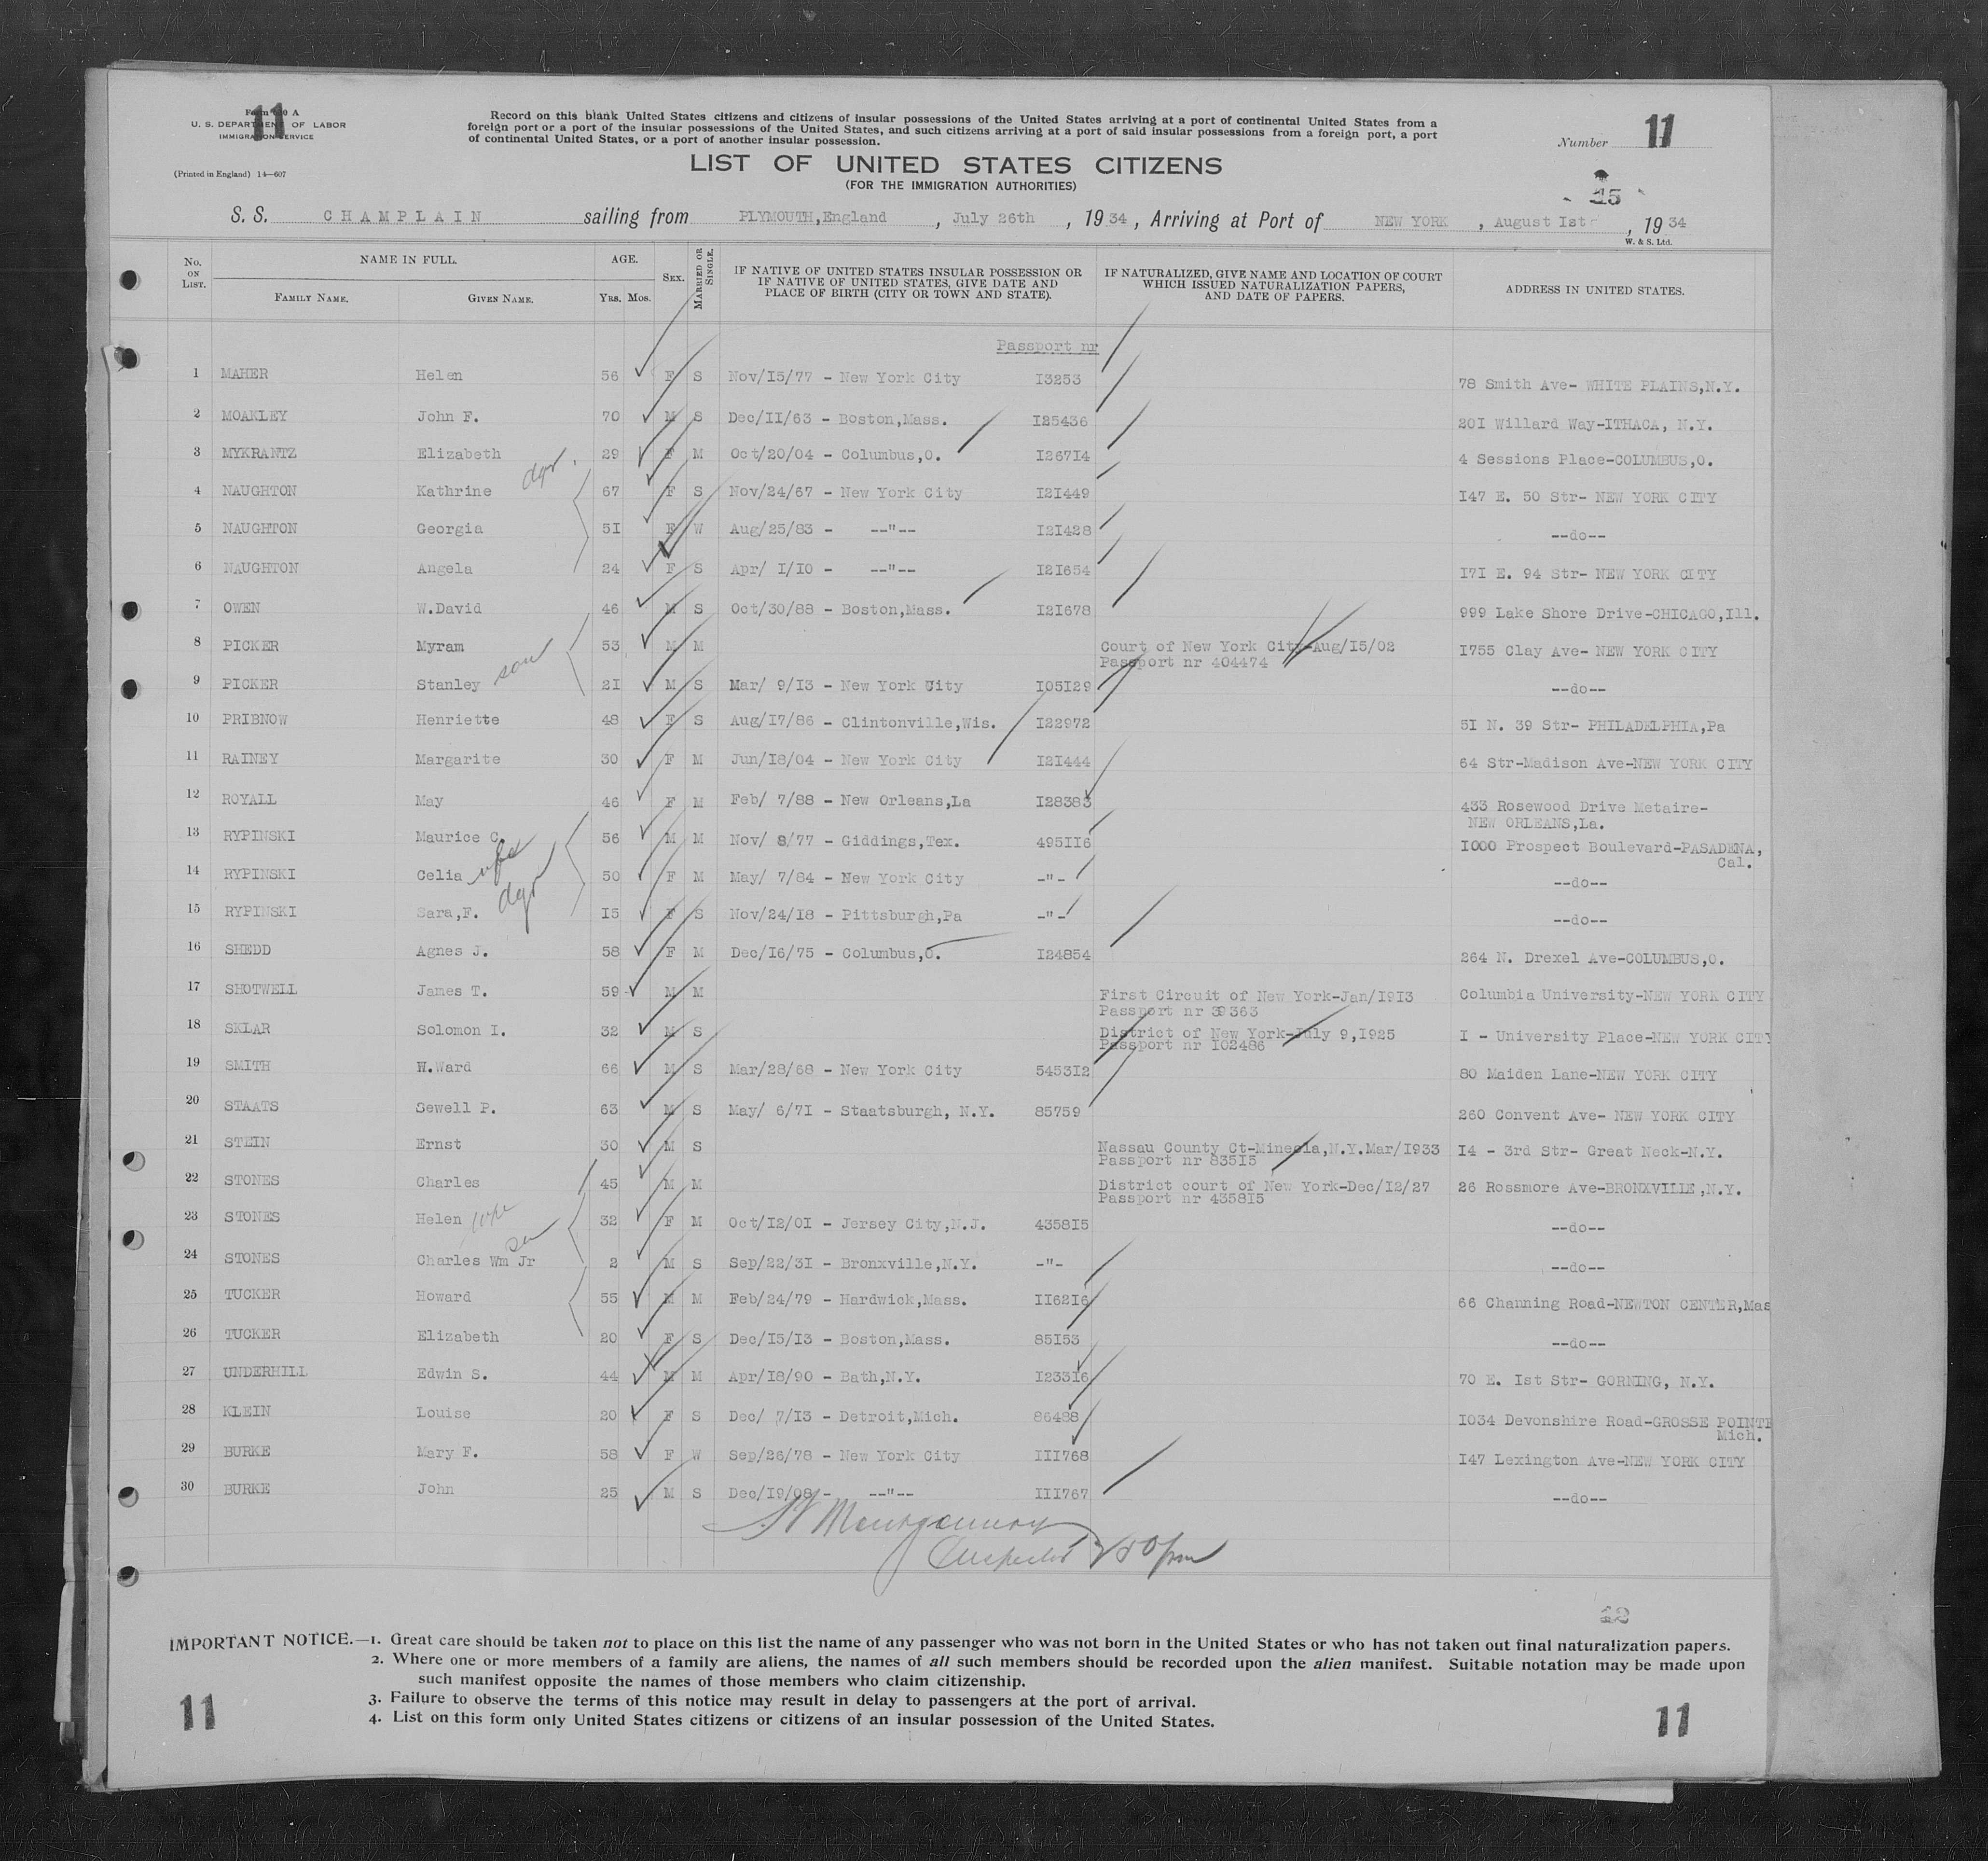 11
U. S. DEPARTMENT OF LABOR
IMMIGRATION SERVICE
(Printed in England) 14—607
Record on this blank United States citizens and citizens of insular possessions of the United States arriving at a port of continental United States from a
foreign port or a port of the insular possessions of the United States, and such citizens arriving at a port of said insular possessions from a foreign port, a port
of continental United States, or a port of another insular possession.
Number 11
LIST OF UNITED STATES CITIZENS
(FOR THE IMMIGRATION AUTHORITIES)
15
S. S. CHAMPLAIN sailing from PLYMOUTH,England , July 26th , 19 34 , Arriving at Port of NEW YORK , August Ist , 19 34
W. & S. Ltd.
No. ON LIST. NAME IN FULL. FAMILY NAME. GIVEN NAME. AGE. Yrs. Mos. SEX. MARRIED OR SINGLE. IF NATIVE OF UNITED STATES INSULAR POSSESSION OR IF NATIVE OF UNITED STATES, GIVE DATE AND PLACE OF BIRTH (CITY OR TOWN AND STATE). IF NATURALIZED, GIVE NAME AND LOCATION OF COURT WHICH ISSUED NATURALIZATION PAPERS, AND DATE OF PAPERS. ADDRESS IN UNITED STATES.
Passport nr
1 MAHER Helen 56 F S Nov/I5/77 - New York City I3253 78 Smith Ave- WHITE PLAINS,N.Y.
2 MOAKLEY John F. 70 M S Dec/II/63 - Boston,Mass. I25436 20I Willard Way-ITHACA, N.Y.
3 MYKRANTZ Elizabeth 29 F M Oct/20/04 - Columbus,O. I267I4 4 Sessions Place-COLUMBUS,O.
4 NAUGHTON Kathrine 67 F S Nov/24/67 - New York City I2I449 I47 E. 50 Str- NEW YORK CITY
5 NAUGHTON Georgia 5I F W Aug/25/83 - --"-- I2I428 --do--
6 NAUGHTON Angela 24 F S Apr/ I/I0 - --"-- I2I654 I7I E. 94 Str- NEW YORK CITY
7 OWEN W.David 46 M S Oct/30/88 - Boston,Mass. I2I678 999 Lake Shore Drive-CHICAGO,Ill.
8 PICKER Myram 53 M M Court of New York City-Aug/I5/02 I755 Clay Ave- NEW YORK CITY
Passport nr 404474
9 PICKER Stanley son 2I M S Mar/ 9/I3 - New York City I05I29 --do--
10 PRIBNOW Henriette 48 F S Aug/I7/86 - Clintonville,Wis. I22972 5I N. 39 Str- PHILADELPHIA,Pa
11 RAINEY Margarite 30 F M Jun/I8/04 - New York City I2I444 64 Str-Madison Ave-NEW YORK CITY
12 ROYALL May 46 F M Feb/ 7/88 - New Orleans,La I28383 433 Rosewood Drive Metaire-
NEW ORLEANS,La.
13 RYPINSKI Maurice C. 56 M M Nov/ 8/77 - Giddings,Tex. 495II6 I000 Prospect Boulevard-PASADENA,
Cal.
14 RYPINSKI Celia wfe 50 F M May/ 7/84 - New York City -"- --do--
15 RYPINSKI Sara,F. dgr I5 F S Nov/24/I8 - Pittsburgh,Pa -"- --do--
16 SHEDD Agnes J. 58 F M Dec/I6/75 - Columbus,O. I24854 264 N. Drexel Ave-COLUMBUS,O.
17 SHOTWELL James T. 59 M M First Circuit of New York-Jan/I9I3 Columbia University-NEW YORK CITY
Passport nr 39363
18 SKLAR Solomon I. 32 M S District of New York-July 9,I925 I - University Place-NEW YORK CITY
Passport nr I02486
19 SMITH H.Ward 66 M S Mar/28/68 - New York City 5453I2 80 Maiden Lane-NEW YORK CITY
20 STAATS Sewell P. 63 M S May/ 6/7I - Staatsburgh, N.Y. 85759 260 Convent Ave- NEW YORK CITY
21 STEIN Ernst 30 M S Nassau County Ct-Mineola,N.Y.Mar/I933 I4 - 3rd Str- Great Neck-N.Y.
Passport nr 835I5
22 STONES Charles 45 M M District court of New York-Dec/I2/27 26 Rossmore Ave-BRONXVILLE,N.Y.
Passport nr 4358I5
23 STONES Helen wfe 32 F M Oct/I2/0I - Jersey City,N.J. 4358I5 --do--
24 STONES Charles Wm Jr 2 M S Sep/22/3I - Bronxville,N.Y. -"- --do--
25 TUCKER Howard 55 M M Feb/24/79 - Hardwick,Mass. II62I6 66 Channing Road-NEWTON CENTER,Mas
26 TUCKER Elizabeth 20 F S Dec/I5/I3 - Boston,Mass. 85I53 --do--
27 UNDERHILL Edwin S. 44 M M Apr/I8/90 - Bath,N.Y. I233I6 70 E. Ist Str- CORNING, N.Y.
28 KLEIN Louise 20 F S Dec/ 7/I3 - Detroit,Mich. 86488 I034 Devonshire Road-GROSSE POINTE
Mich.
29 BURKE Mary F. 58 F W Sep/26/78 - New York City III768 I47 Lexington Ave-NEW YORK CITY
30 BURKE John 25 M S Dec/I9/08 - --"-- III767 --do--
Montgomery
Inspector 250 pm
12
IMPORTANT NOTICE.—1. Great care should be taken not to place on this list the name of any passenger who was not born in the United States or who has not taken out final naturalization papers.
2. Where one or more members of a family are aliens, the names of all such members should be recorded upon the alien manifest. Suitable notation may be made upon
such manifest opposite the names of those members who claim citizenship.
3. Failure to observe the terms of this notice may result in delay to passengers at the port of arrival.
4. List on this form only United States citizens or citizens of an insular possession of the United States.
11 11